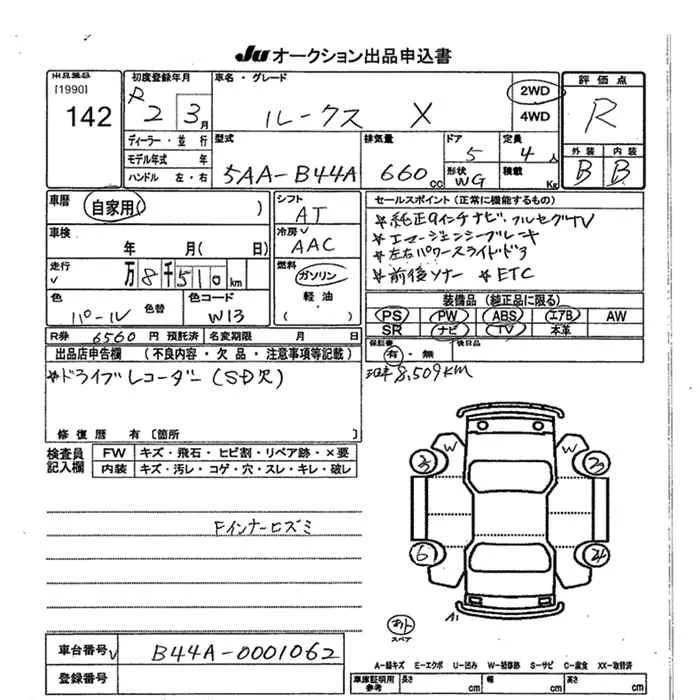 JU オークション出品申込書
出品番号
[1990]
142
初度登録年月
R 2 3 月
車名・グレード
ルークス X
2WD
4WD
評価点
R
外装 内装
B B
ディーラー・並行
モデル年式 年
ハンドル 左・右
型式
5AA-B44A
排気量
660 cc
ドア
5
形状
WG
定員
4 人
積載
Kg
車歴
自家用( )
車検
年 月( 日)
走行
万 8 千 510 km
色
パール
色替
色コード
W13
シフト
AT
冷房
AAC
燃料
ガソリン
軽油
( )
セールスポイント (正常に機能するもの)
☆純正9インチナビ、フルセグTV
☆エマージェンシーブレーキ
☆左右パワースライドドア
☆前後ソナー ☆ETC
装備品 (純正品に限る)
PS PW ABS エアB AW
SR ナビ TV 本革
保証書
有・無
後日品
R券 6560 円 預託済
名変期限 月 日
出品店申告欄 (不良内容・欠品・注意事項等記載)
☆ドライブレコーダー(SD欠)
8,509KM
修復歴 有 [箇所 ]
検査員
記入欄
FW キズ・飛石・ヒビ割・リペア跡・×要
内装 キズ・汚レ・コゲ・穴・スレ・キレ・破レ
Fインナーヒズミ
W W
6
スペア
車台番号 B44A-0001062
登録番号
A-線キズ E-エクボ U-凹み W-補修跡 S-サビ C-腐食 XX-取替済
車庫証明用
参考
長さ cm 幅 cm 高さ cm